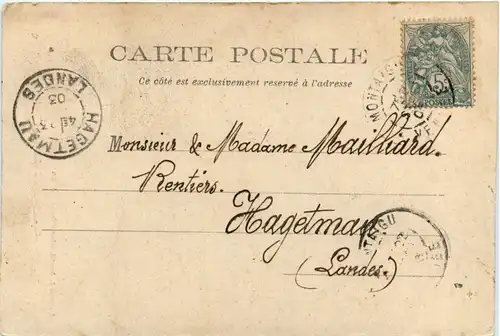 CARTE POSTALE
Ce côté est exclusivement reservé à l'adresse
HAGETMAU
LANDES
03
5
POSTES
Monsieur & Madame Mailliard.
Rentiers.
Hagetmau
(Landes.)